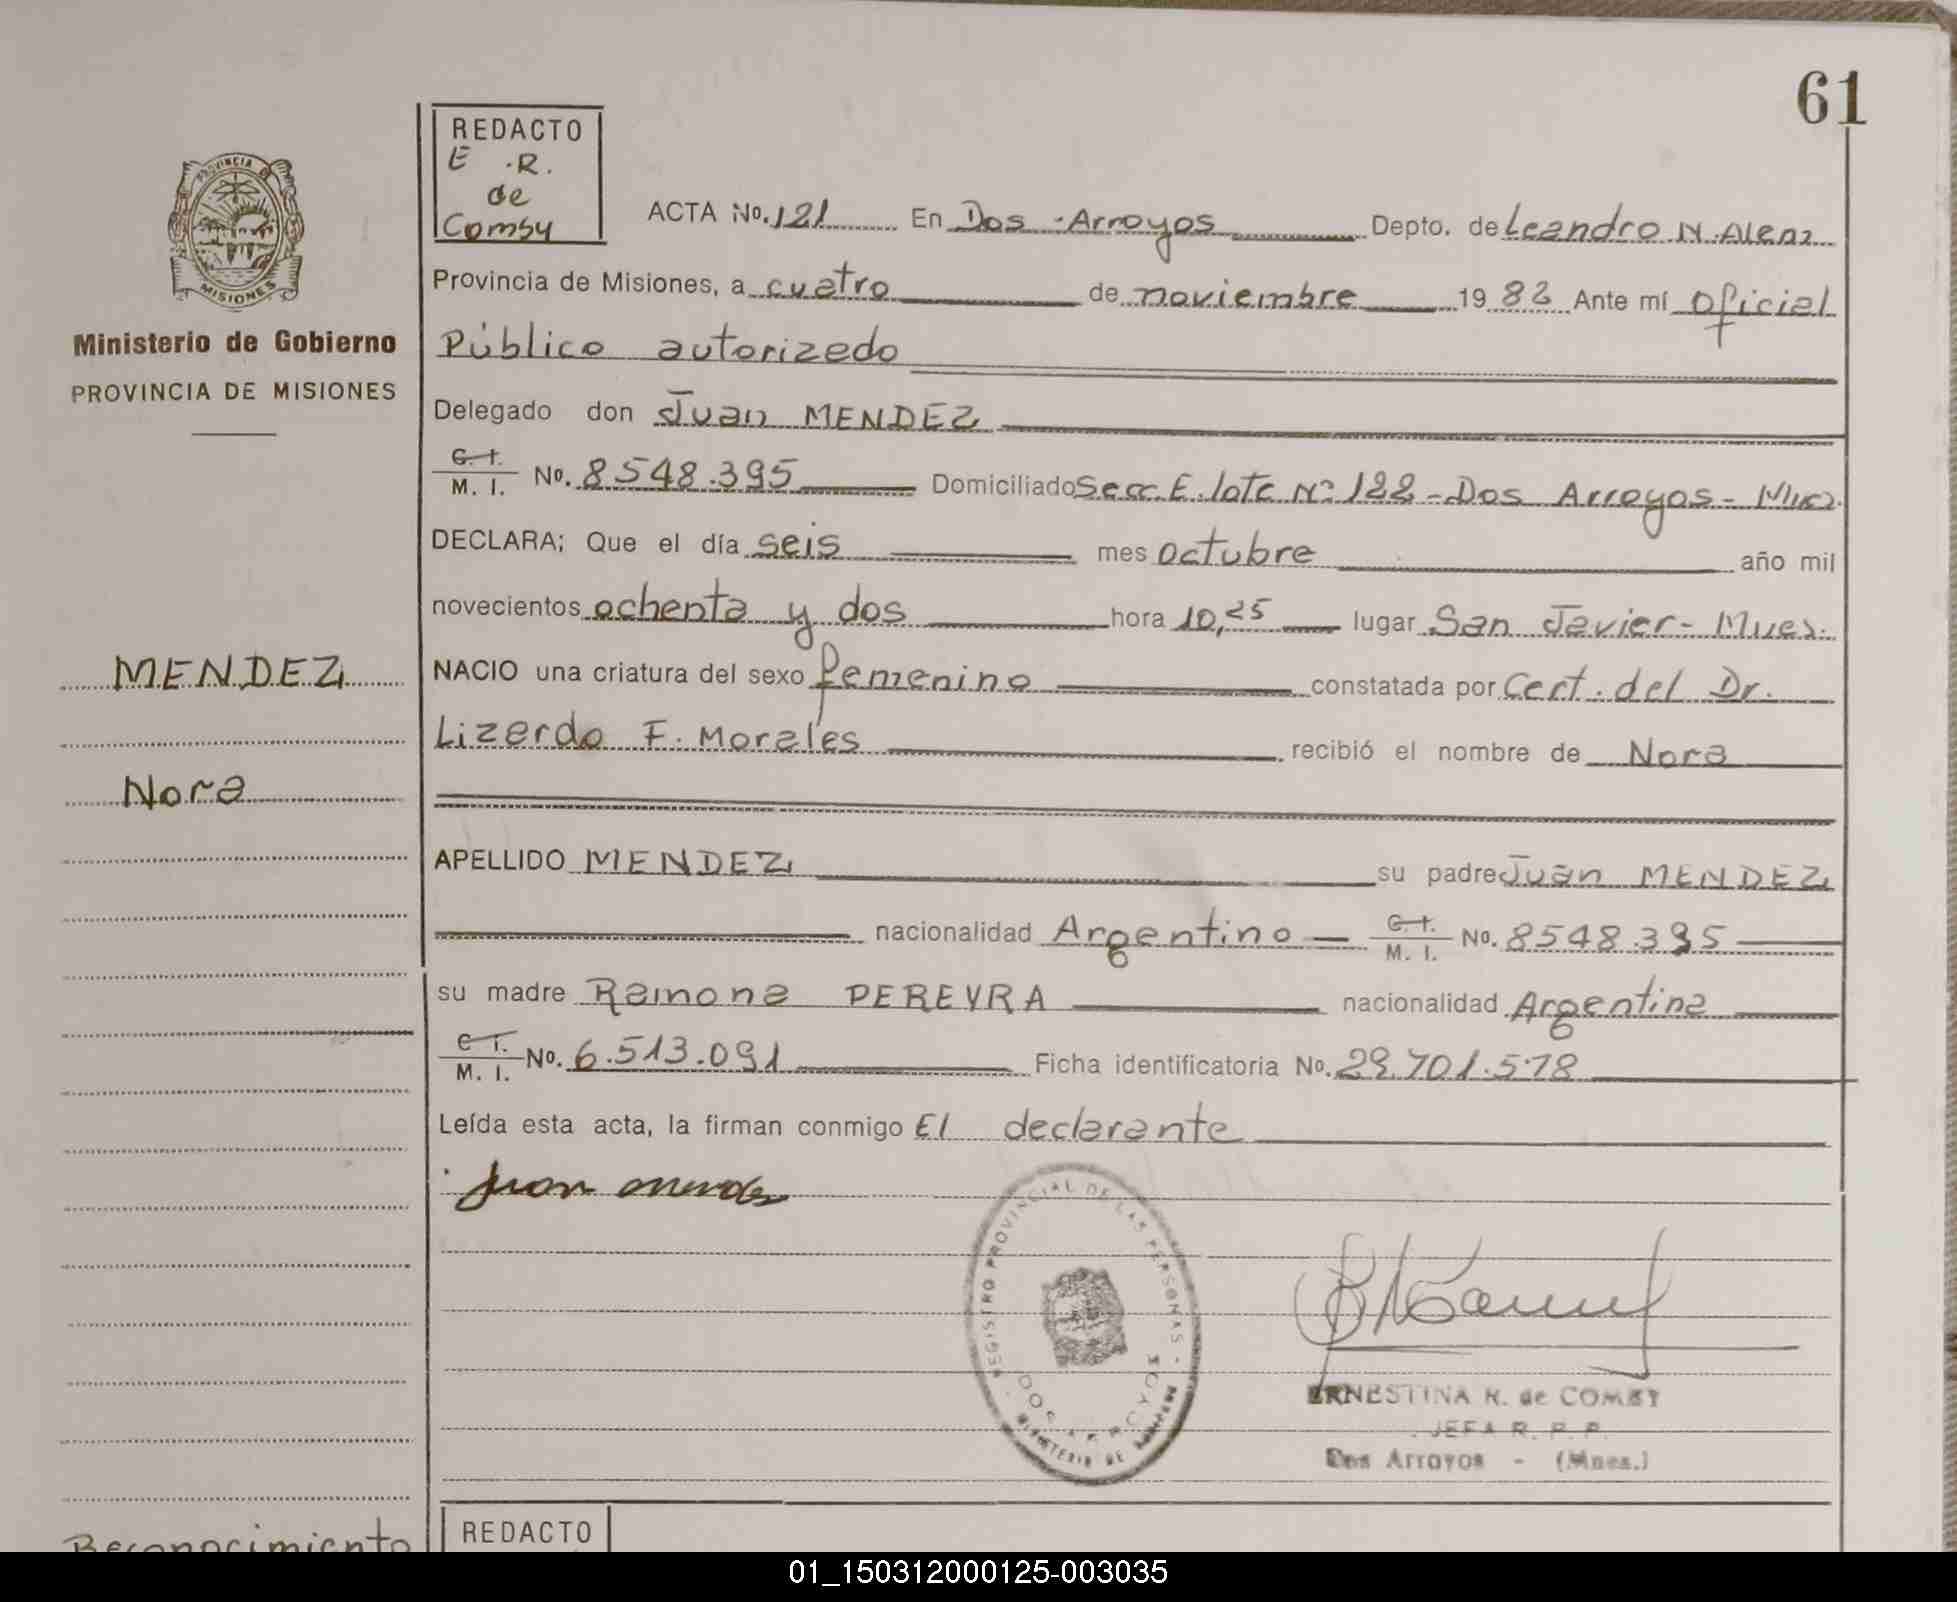 61
REDACTO
E .R.
de
Comby
PROVINCIA
MISIONES
Ministerio de Gobierno
PROVINCIA DE MISIONES
ACTA No. 121 En Dos Arroyos Depto. de Leandro N. Alem
Provincia de Misiones, a cuatro de noviembre 19 82 Ante mí oficial
Público autorizado
Delegado don Juan MENDEZ
C. I.
M. I. No. 8548.395 Domiciliado Secc. E. lote Nº 122 - Dos Arroyos -
DECLARA; Que el día seis mes octubre año mil
novecientos ochenta y dos hora 10,25 lugar San Javier -
MENDEZ
NACIO una criatura del sexo femenino constatada por Cert. del Dr.
Lizardo F. Morales recibió el nombre de Nora
Nora
APELLIDO MENDEZ su padre Juan MENDEZ
nacionalidad Argentino C. I. M. I. No. 8548.395
su madre Ramona PEREYRA nacionalidad Argentina
C. I.
M. I. No. 6.513.091 Ficha identificatoria No. 29.701.578
Leída esta acta, la firman conmigo El declarante
Juan Mendez
REGISTRO PROVINCIAL DE LAS PERSONAS
DOS ARROYOS
MINISTERIO DE GOBIERNO
ERNESTINA R. de COMBY
JEFA R. P. P.
Dos Arroyos - (Mnes.)
REDACTO
Reconocimiento
01_150312000125-003035